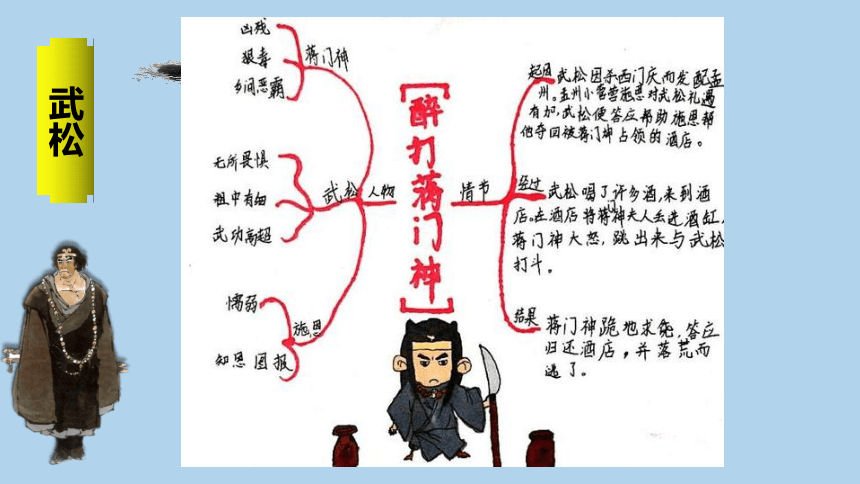 武松
[醉打蒋门神]
人物
蒋门神
凶残
狠毒
乡间恶霸
武松
无所畏惧
粗中有细
武功高超
施恩
懦弱
知恩图报
情节
起因
武松因杀西门庆而发配孟
州。孟州小管营施恩对武松礼遇
有加,武松便答应帮助施恩帮
他夺回被蒋门神占领的酒店。
经过
武松喝了许多酒,来到酒
店。在酒店将蒋门神夫人丢进酒缸,
蒋门神大怒,跳出来与武松
打斗。
结果
蒋门神跪地求饶,答应
归还酒店,并落荒而
逃了。